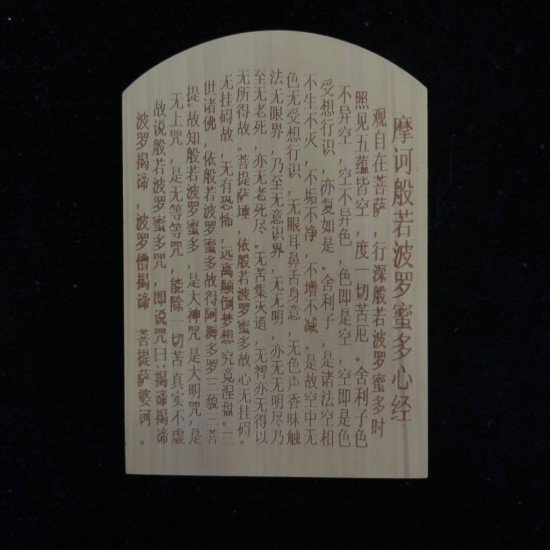 摩诃般若波罗蜜多心经
观自在菩萨，行深般若波罗蜜多时
照见五蕴皆空，度一切苦厄。舍利子色
不异空，空不异色，色即是空，空即是色
受想行识，亦复如是。舍利子，是诸法空相
不生不灭，不垢不净，不增不减。是故空中无
色无受想行识，无眼耳鼻舌身意，无色声香味触
法无眼界，乃至无意识界，无无明，亦无无明尽乃
至无老死，亦无老死尽。无苦集灭道，无智亦无得以
无所得故。菩提萨埵，依般若波罗蜜多故心无挂碍。
无挂碍故，无有恐怖，远离颠倒梦想究竟涅盘。三
世诸佛，依般若波罗蜜多故得阿耨多罗三藐三菩
提。故知般若波罗蜜多，是大神咒是大明咒，是
无上咒，是无等等咒，能除一切苦真实不虚
故说般若波罗蜜多咒，即说咒曰：揭谛揭谛
波罗揭谛，波罗僧揭谛 菩提萨婆诃。